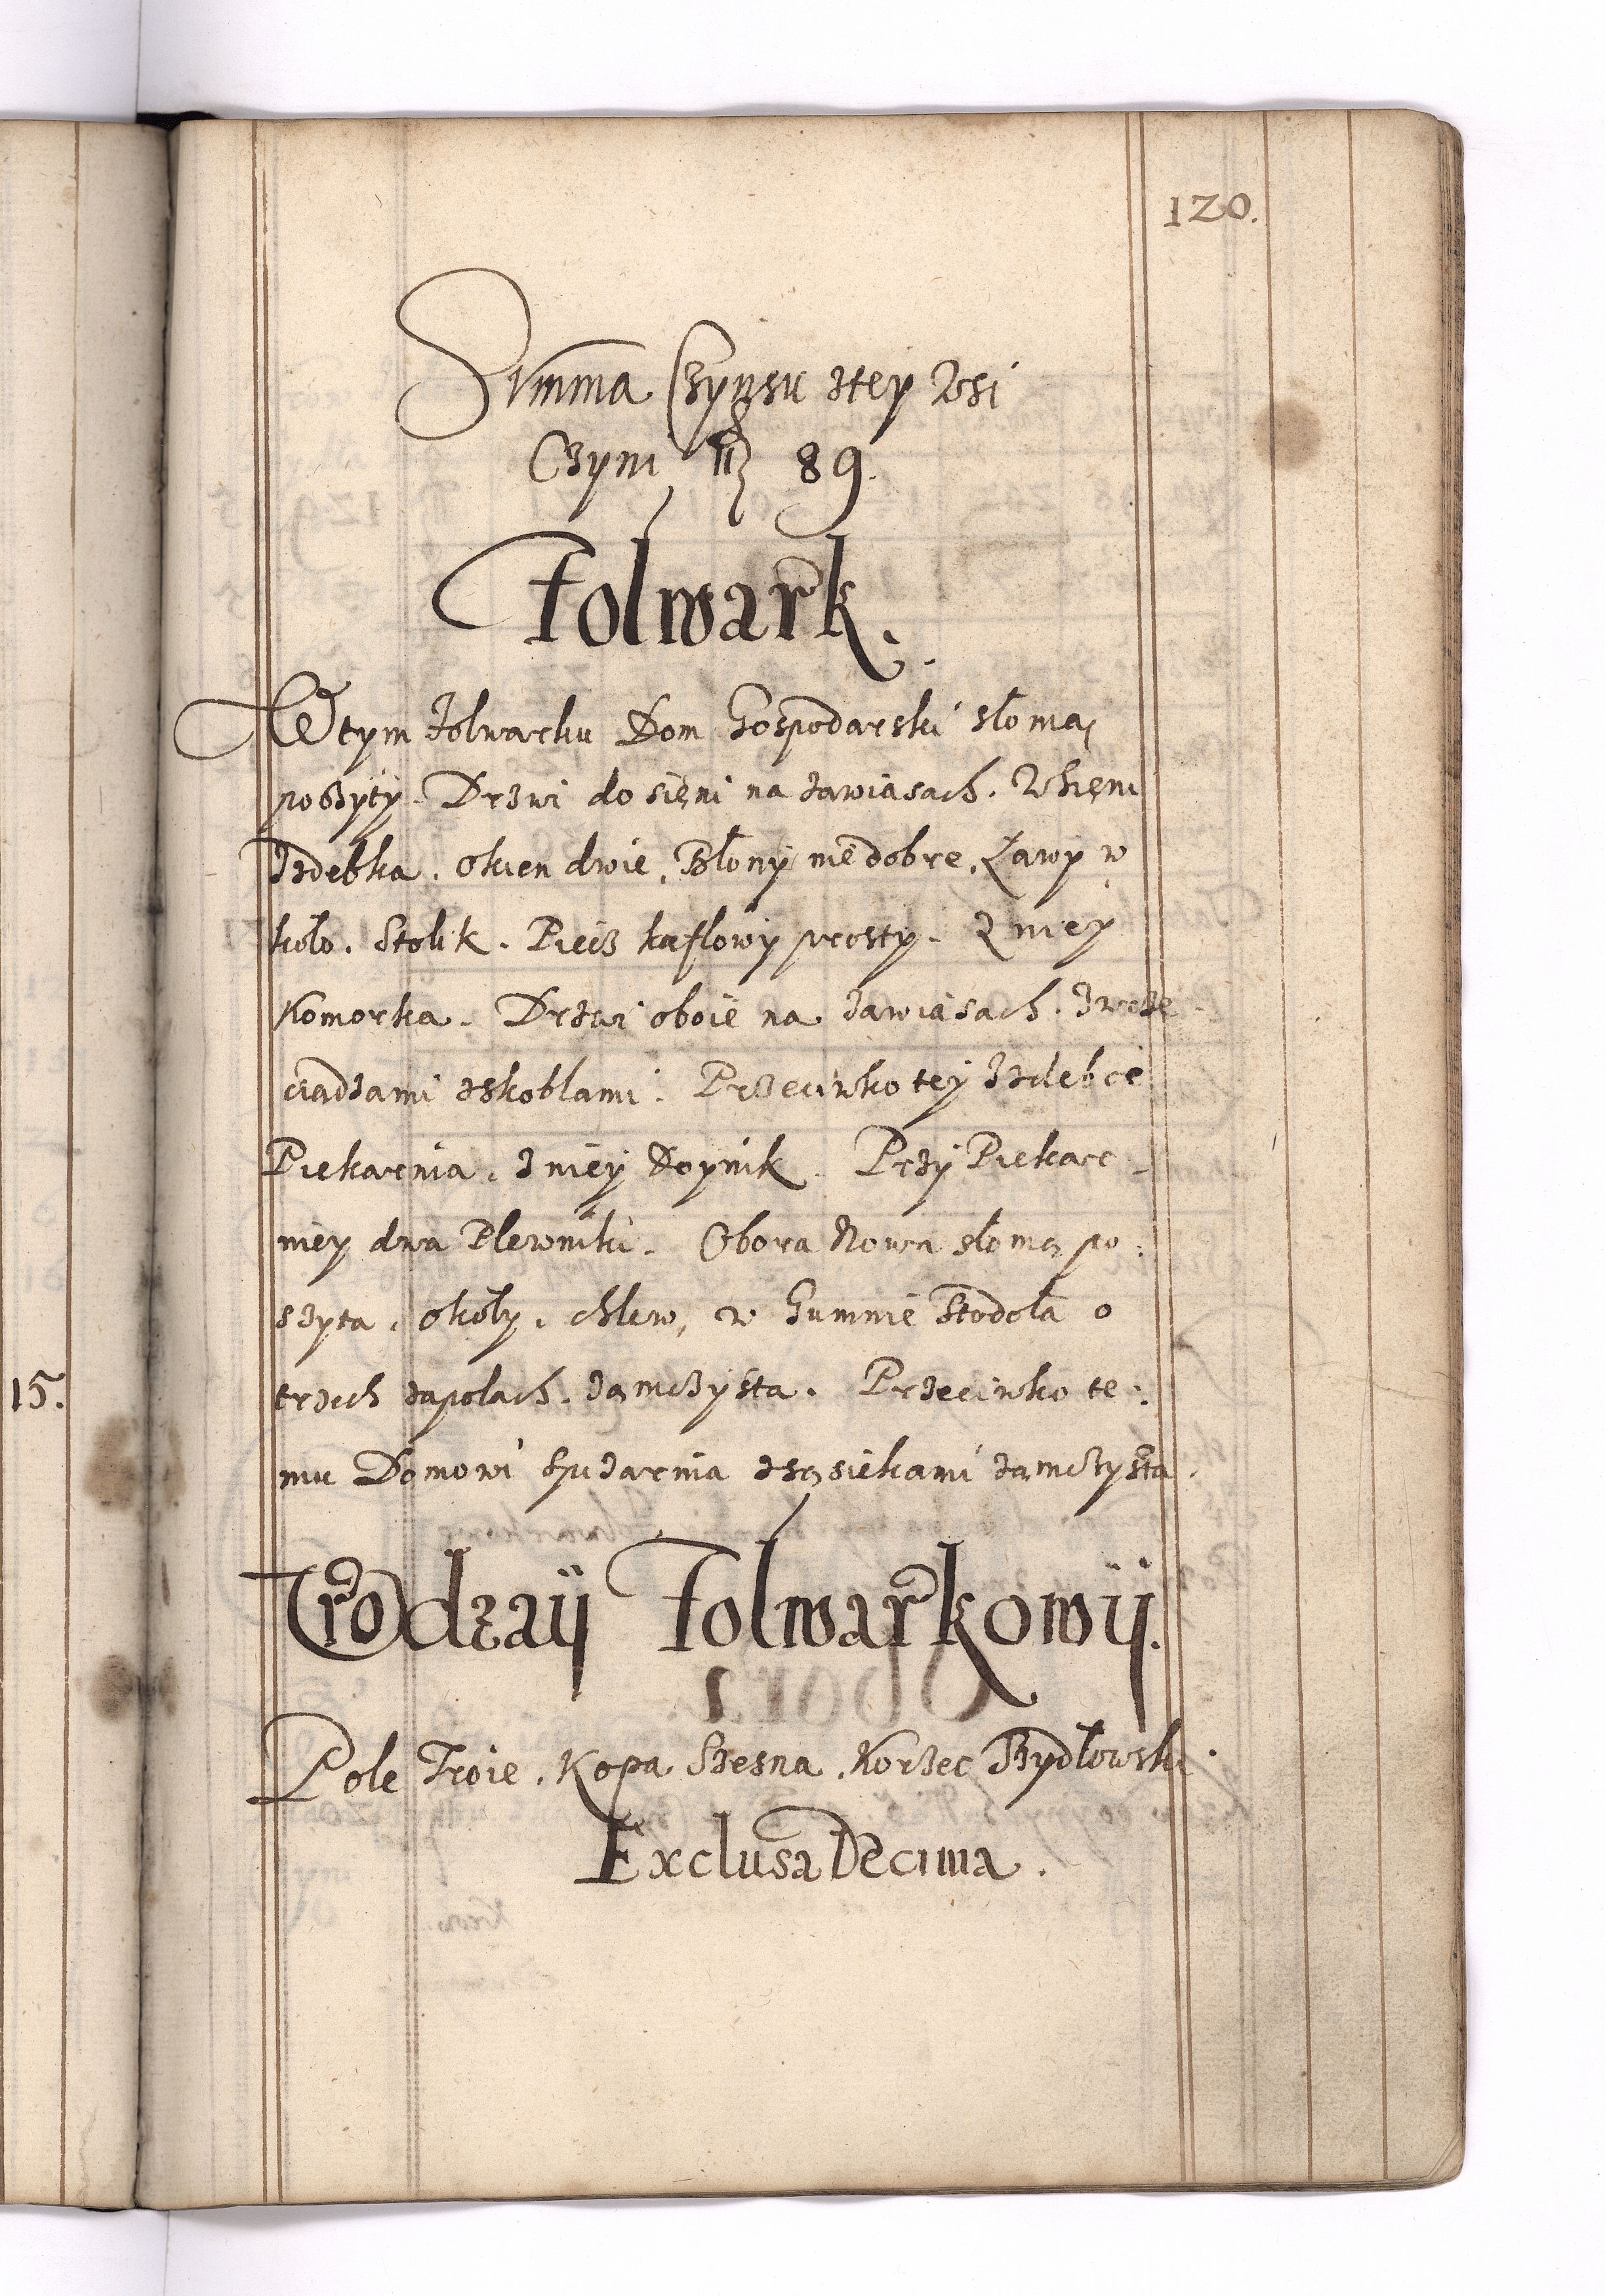 120.
Summa Czynszu ztey Wsi
Czyni fl 89.
Folwark.
W tym folwarku Dom Gospodarski słomą
poszyty. Drzwi do sięni na zawiasach. W sięni
Izdebka. Okien dwie, Błony niedobre, Ławy w
koło. Stolik. Piecz kaflowy prosty. Z niey
Komorka. Drzwi oboie na zawiasach. Zwrze
ciadzami zskoblami. Przeciwko tey Izdebce
Piekarnia. Z niey Doynik. Przy Piekar-
niey dwa Plewniki. Obora Nowa słomą po:
szyta. okoły. chlew, w Gumnie Stodoła o
trzech zapolach. zamczysta. Przeciwko te:
mu Domowi Spizarnia zsąsiekami zamczysta.
Vrodzaÿ Folwarkowÿ.
Pole Troie. Kopa Szesna. Korzec Bydłowski.
Exclusa Decima.
15.